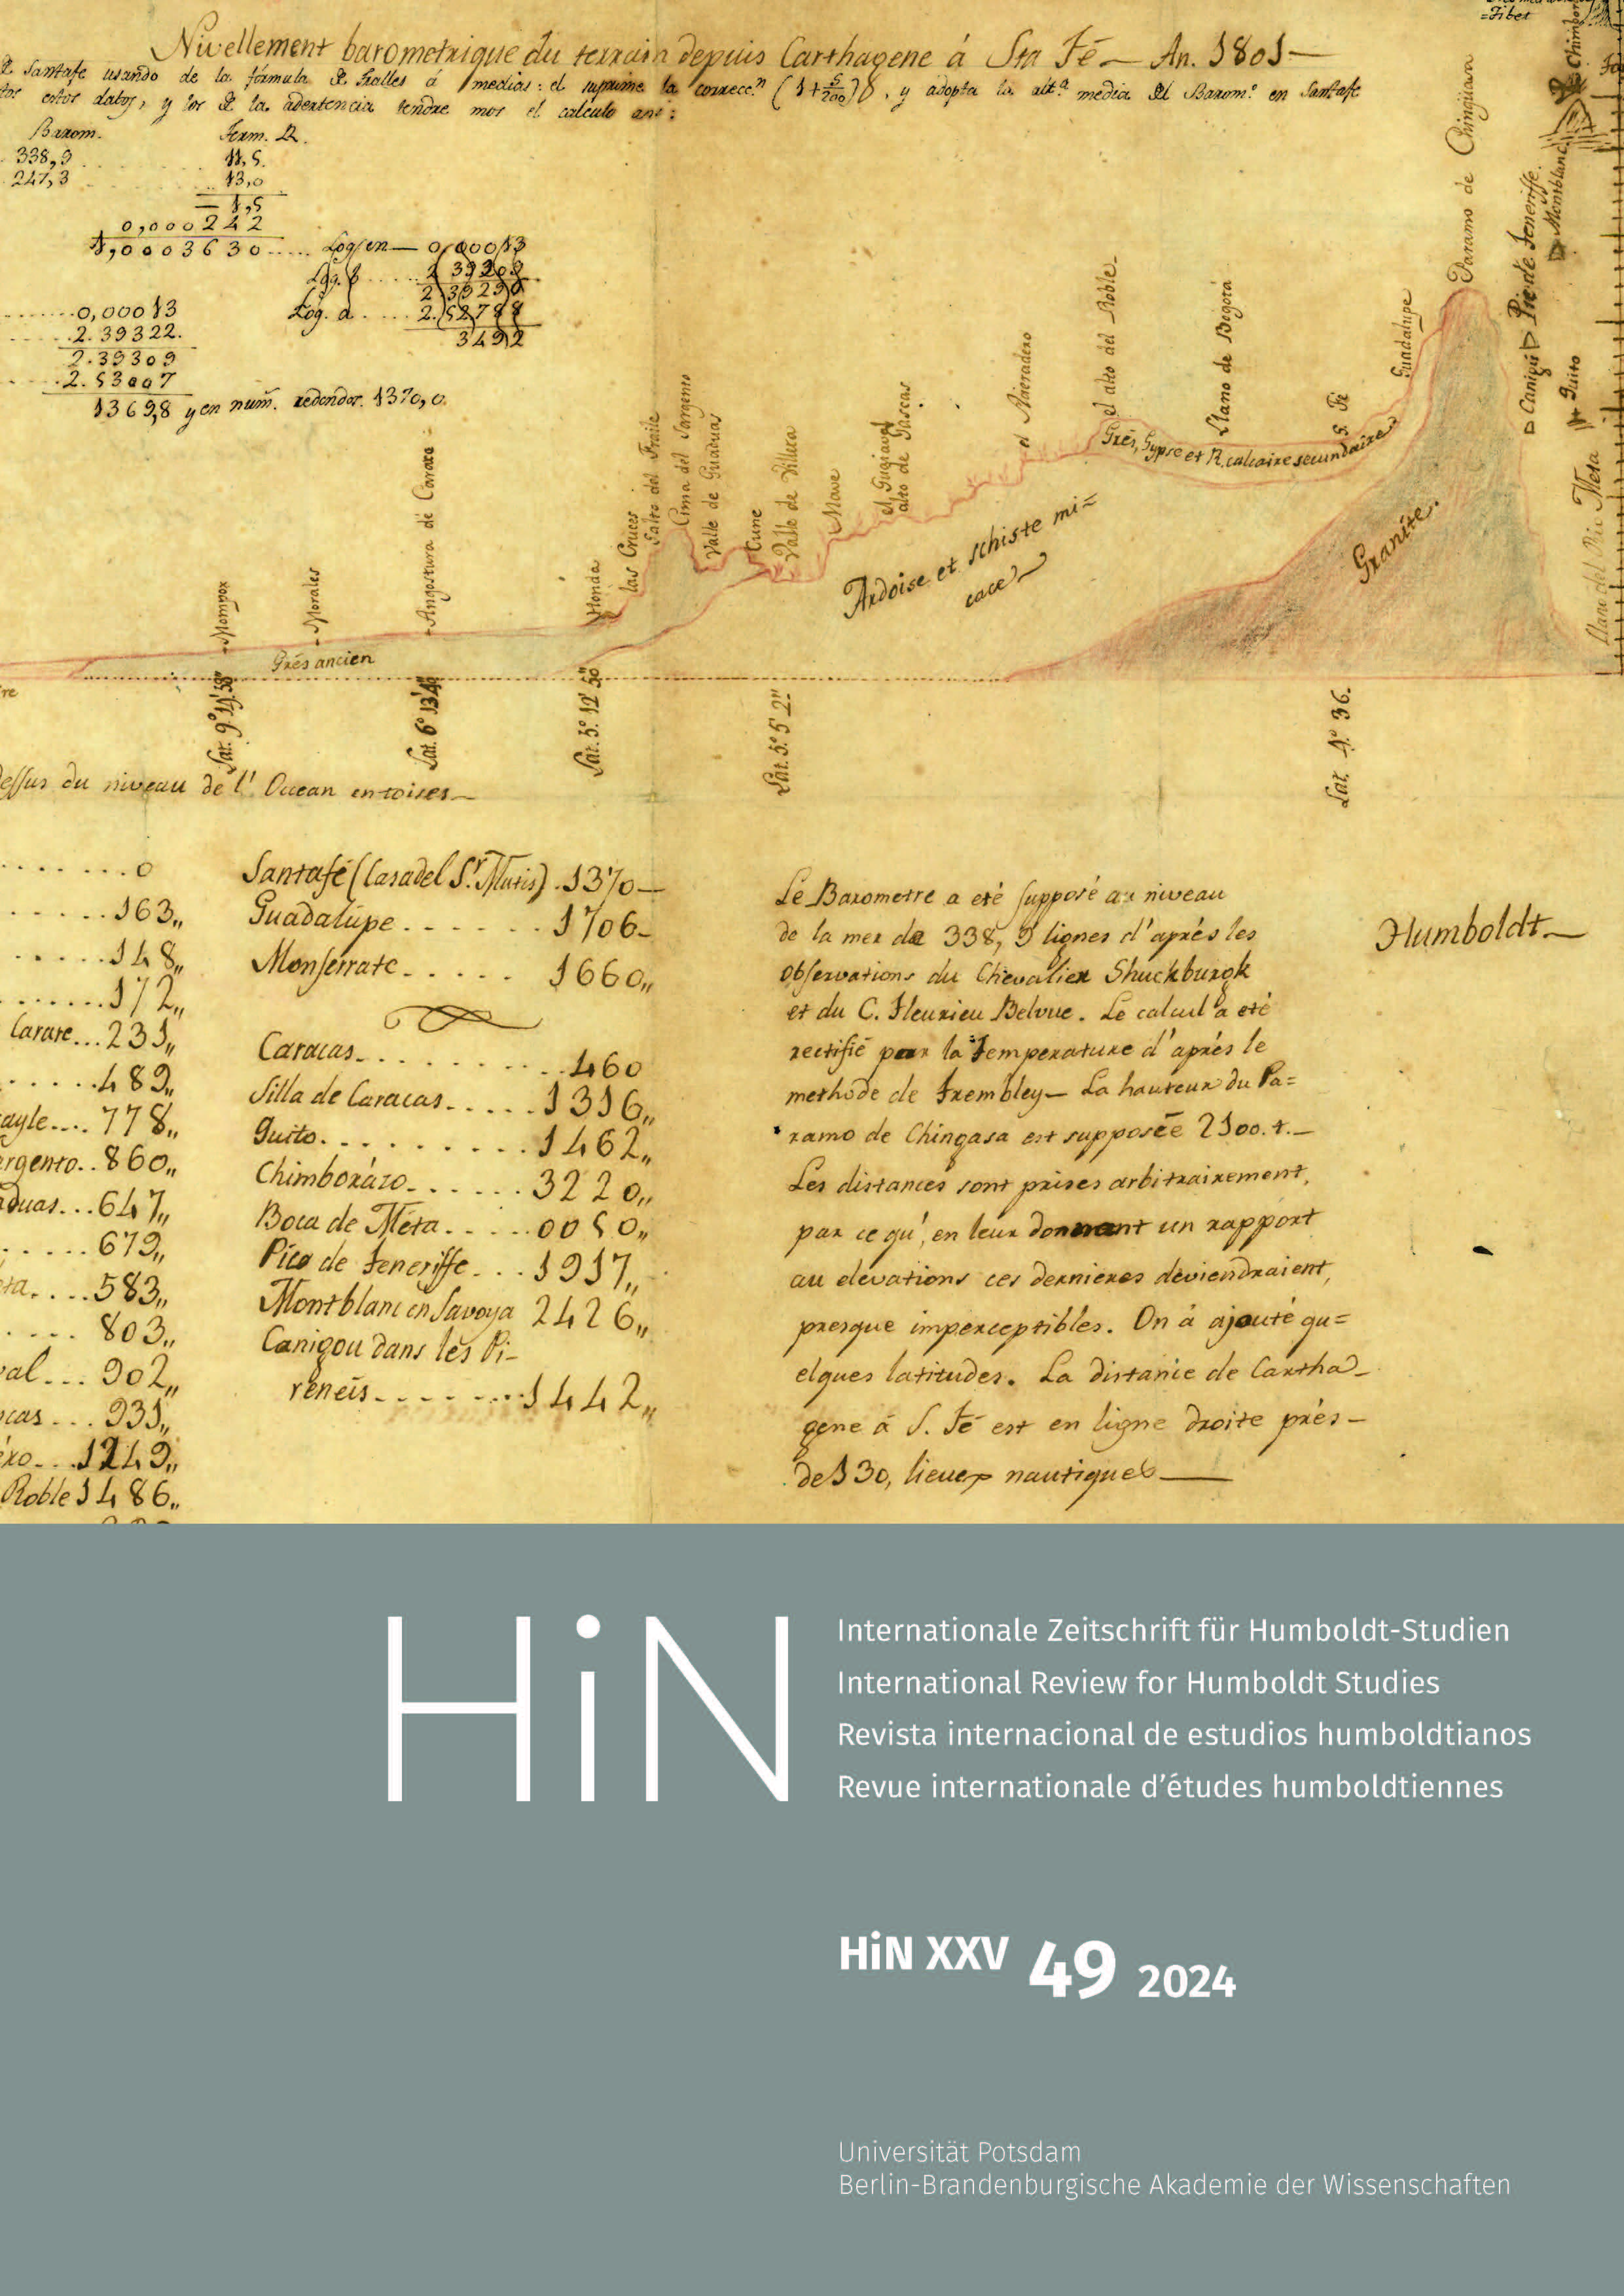 =Tibet
Nivellement barometrique du terrain depuis Carthagene á Sta Fé — An. 1801 —
Santafe usando de la fórmula de Tralles á medias: el suprime la correcc.n (1+5/200)B, y adopta la alt.a media del Barom.o en Santafe
estos datos, y los de la adertencia tendre mos el calculo asi:
Barom. Term. R.
338,9 11,5.
247,3 13,0
1,5
0,000242
1,0003630..... Log. en — 0,00013
Log. B .....
Log. a ..... 2.52788
3492
.......0,00013
.....2.39322.
2.39309
1369,8 y en num. redondos. 1370,0.
Mompox
Morales
Angostura de Carare
Honda
las Cruces
Salto del Fraile
Cima del Sargento
Valle de Guaduas
Cune
Valle de Villeta
Mave
alto de Gascas
el Aseradero
el alto del Roble
Llano de Bogotá
S. Fé
Guadalupe
Paramo de Chinguasa
Canigú
Pic de Teneriffe.
Montblanc
Quito
Llano del Rio Meta
Grés ancien
Ardoise et schiste mi=
cacé
Grés, Gypse et R. calcaire secundaire
Granite.
Lat. 9° 14' 58"
Lat. 6° 13' 4"
Lat. 5° 12' 50"
Lat. 5° 5' 2"
Lat. 4° 36.
dessus du niveau de l' Ocean en toises —
.......0
......163,,
......148,,
.......172,,
Carare...231,,
......489,,
ayle....778,,
argento..860,,
aduas...647,,
......679,,
ta.....583,,
.... 803,,
val... 902,,
cas ... 931,,
ero...1249,,
Roble 1486,,
Santafé (Casa del S.r Mutis). 1370 —
Guadalúpe....... 1706 —
Monserrate..... 1660,,
Caracas.......... 460
Silla de Caracas..... 1316,,
Quito.......... 1462,,
Chimborázo...... 3220,,
Boca de Méta..... 0050,,
Pico de Teneriffe... 1917,,
Montblanc en Savoya 2426,,
Canigou dans les Pi-
reneis........ 1442,,
Le Barometre a eté supposé au niveau
de la mer de 338, 9 lignes d'aprés les
observations du Chevalier Shuckburgk
et du C. Fleurieu Belvue. Le calcul a eté
rectifié par la Temperature d'aprés le
methode de Trembley — La hauteur du Pa=
ramo de Chingasa est supposée 2100. t. —
Les distances sont prises arbitrairement,
par ce qu', en leur donnant un rapport
au elevations ces dernieres deviendraient,
presque imperceptibles. On á ajouté qu=
elques latitudes. La distance de Cartha-
gene á S. Fé est en ligne droite prés —
de 130, lieues nautiques —
Humboldt —
HiN
Internationale Zeitschrift für Humboldt-Studien
International Review for Humboldt Studies
Revista internacional de estudios humboldtianos
Revue internationale d'études humboldtiennes
HiN XXV 49 2024
Universität Potsdam
Berlin-Brandenburgische Akademie der Wissenschaften